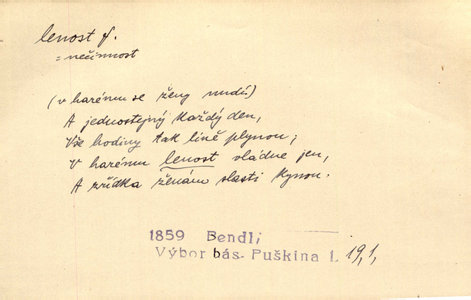 lenost f.
= nečinnost
(v harému se ženy nudí)
A jednostejný každý den,
Vše hodiny tak líně plynou;
V harému lenost vládne jen,
A zřídka ženám slasti kynou.
1859 Bendl,
Výbor bás. Puškina I. 19,1,